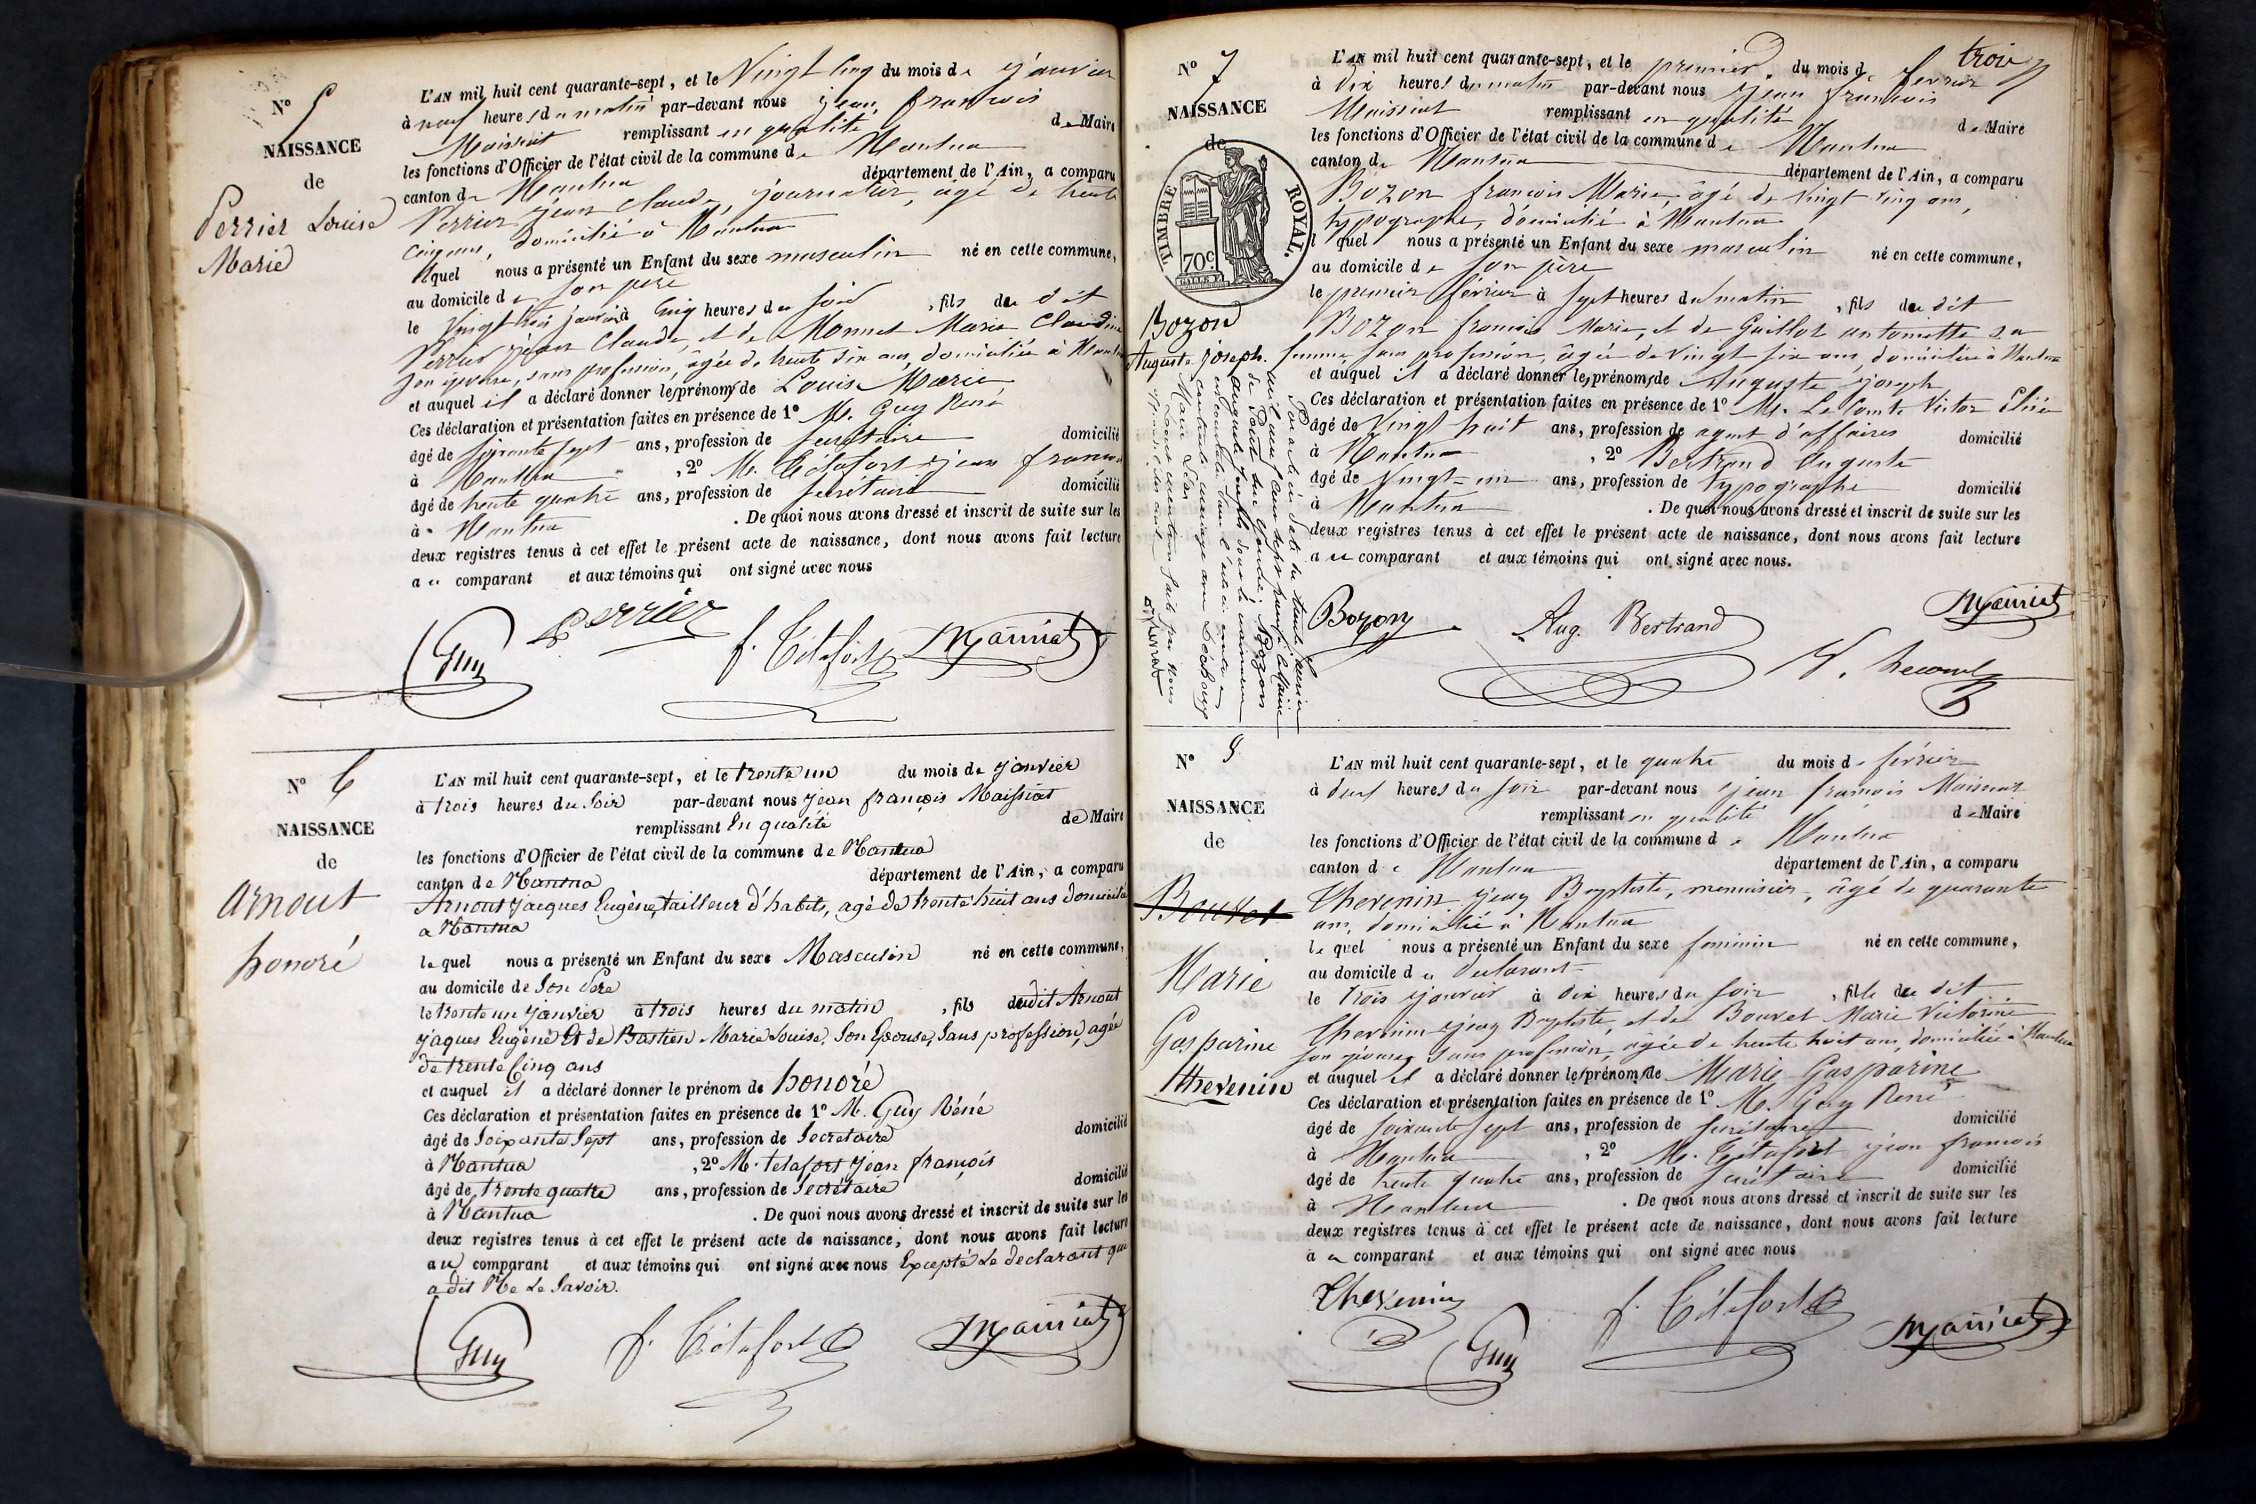 N° 5
NAISSANCE
de
Perrier Louise
Marie
L'AN mil huit cent quarante-sept, et le Vingt cinq du mois de janvier
à neuf heures du matin par-devant nous jean françois
Maissiat remplissant en qualité de Maire
les fonctions d'Officier de l'état civil de la commune de Nantua
canton de Nantua département de l'Ain, a comparu
Perrier jean Claude, journalier, âgé de trente
cinq ans, domicilié à Nantua
lequel nous a présenté un Enfant du sexe masculin né en cette commune,
au domicile de son père
le vingt trois janvier à cinq heures du soir, fils du dit
Perrier jean Claude, et de Monnet Marie Claudine
son épouse, sans profession, âgée de trente six ans, domiciliée à Nantua
et auquel il a déclaré donner les prénoms de Louis Marie
Ces déclaration et présentation faites en présence de 1° M. Guy René
âgé de soixante sept ans, profession de secrétaire domicilié
à Nantua, 2° M. Tétafort jean françois
âgé de trente quatre ans, profession de secrétaire domicilié
à Nantua. De quoi nous avons dressé et inscrit de suite sur les
deux registres tenus à cet effet le présent acte de naissance, dont nous avons fait lecture
au comparant et aux témoins qui ont signé avec nous
Guy Perrier f. Tétafort Maissiat
N° 6
NAISSANCE
de
Arnout
honoré
L'AN mil huit cent quarante-sept, et le trente un du mois de janvier
à trois heures du soir par-devant nous jean françois Maissiat
remplissant en qualité de Maire
les fonctions d'Officier de l'état civil de la commune de Nantua
canton de Nantua département de l'Ain, a comparu
Arnout jacques Eugène, tailleur d'habits, agé de trente huit ans domicilié
a Nantua
le quel nous a présenté un Enfant du sexe Masculin né en cette commune,
au domicile de son Père
le trente un janvier à trois heures du matin, fils dudit Arnout
jaques Eugène Et de Bastien Marie Louise, Son Epouse, Sans profession, agée
de trente Cinq ans
et auquel il a déclaré donner le prénom de honoré
Ces déclaration et présentation faites en présence de 1° M. Guy Réné
âgé de Soixante Sept ans, profession de Secretaire domicilié
à Nantua, 2° M. tetafort jean françois
âgé de trente quatre ans, profession de Secrétaire domicilié
à Nantua. De quoi nous avons dressé et inscrit de suite sur les
deux registres tenus à cet effet le présent acte de naissance, dont nous avons fait lecture
au comparant et aux témoins qui ont signé avec nous Excepté Le declarant qui
a dit Ne Le Savoir.
Guy f. Tétafort Maissiat
trois
N° 7
NAISSANCE
de
TIMBRE ROYAL.
70c
Bozon
Auguste joseph.
L'AN mil huit cent quarante-sept, et le premier du mois de fevrier
à dix heures du matin par-devant nous jean françois
Maissiat remplissant en qualité de Maire
les fonctions d'Officier de l'état civil de la commune de Nantua
canton de Nantua département de l'Ain, a comparu
Bozon françois Marie, âgé de vingt cinq ans,
typographe, domicilié à Nantua
lequel nous a présenté un Enfant du sexe masculin né en cette commune,
au domicile de son père
le premier février à sept heures du matin, fils du dit
Bozon françois Marie, et de Guillot antoinette sa
femme, sans profession, âgée de vingt six ans, domiciliée à Nantua
et auquel il a déclaré donner les prénoms de Auguste joseph
Ces déclaration et présentation faites en présence de 1° Mr. Le Comte Victor
âgé de Vingt huit ans, profession de agent d'affaires domicilié
à Nantua, 2° Bertrand Auguste
âgé de Vingt-un ans, profession de typographe domicilié
à Nantua. De quoi nous avons dressé et inscrit de suite sur les
deux registres tenus à cet effet le présent acte de naissance, dont nous avons fait lecture
au comparant et aux témoins qui ont signé avec nous.
Bozon Aug. Bertrand Maissiat
V. Lecomte
N° 8
NAISSANCE
de
Bouvet
Marie
Gasparine
thevenin
L'AN mil huit cent quarante-sept, et le quatre du mois de février
à deux heures du soir par-devant nous jean françois Maissiat
remplissant en qualité de Maire
les fonctions d'Officier de l'état civil de la commune de Nantua
canton de Nantua département de l'Ain, a comparu
Thevenin jean Baptiste, menuisier, âgé de quarante
ans, domicilié à Nantua
le quel nous a présenté un Enfant du sexe feminin né en cette commune,
au domicile du declarant
le trois janvier à dix heures du soir, fille du dit
Thevenin jean Baptiste, et de Bouvet Marie Victorine
son épouse, sans profession, agée de trente huit ans, domiciliée à Nantua
et auquel il a déclaré donner les prénoms de Marie Gasparine
Ces déclaration et présentation faites en présence de 1° M. Guy René
âgé de soixante sept ans, profession de secrétaire domicilié
à Nantua, 2° M. Tétafort jean françois
âgé de trente quatre ans, profession de secrétaire domicilié
à Nantua. De quoi nous avons dressé et inscrit de suite sur les
deux registres tenus à cet effet le présent acte de naissance, dont nous avons fait lecture
au comparant et aux témoins qui ont signé avec nous
Thevenin Guy f. Tétafort Maissiat